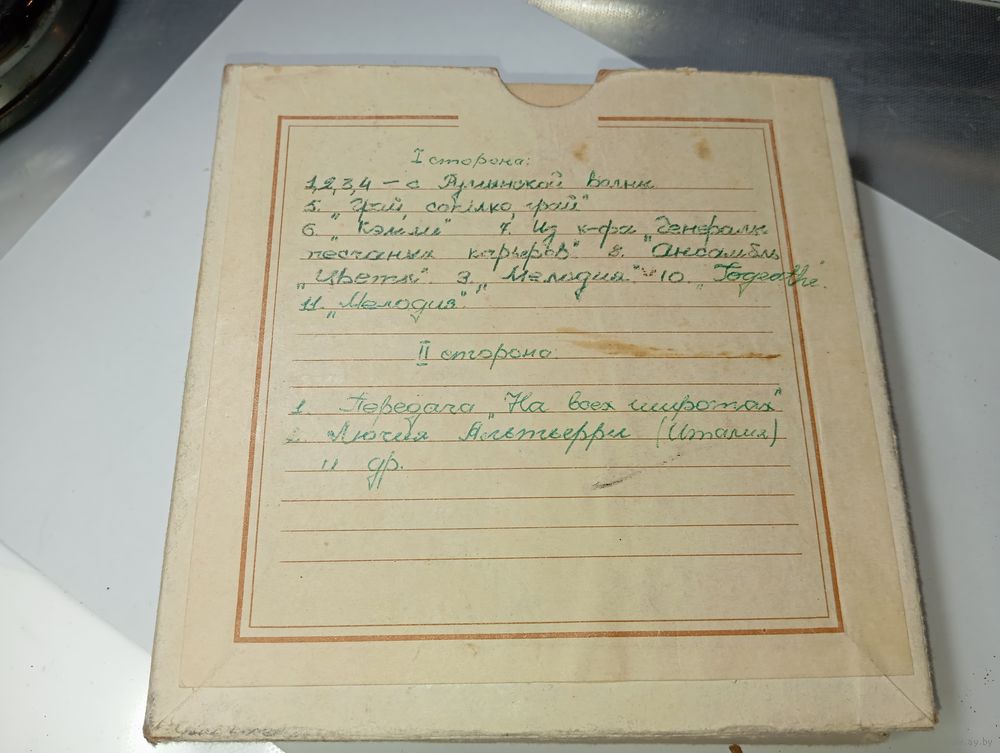 I сторона:
1,2,3,4 – с Румынской волны
5. "Грай, сопілко, грай"
6. 7. Из к-фа "Генералы
песчаных карьеров" 8. "Ансамбль
"Цветы". 9. "Мелодия". 10. "Togeathe".
11. "Мелодия".
II сторона:
1. Передача "На всех широтах"
2. Лючия Альтьерри (Италия)
и др.
ay.by